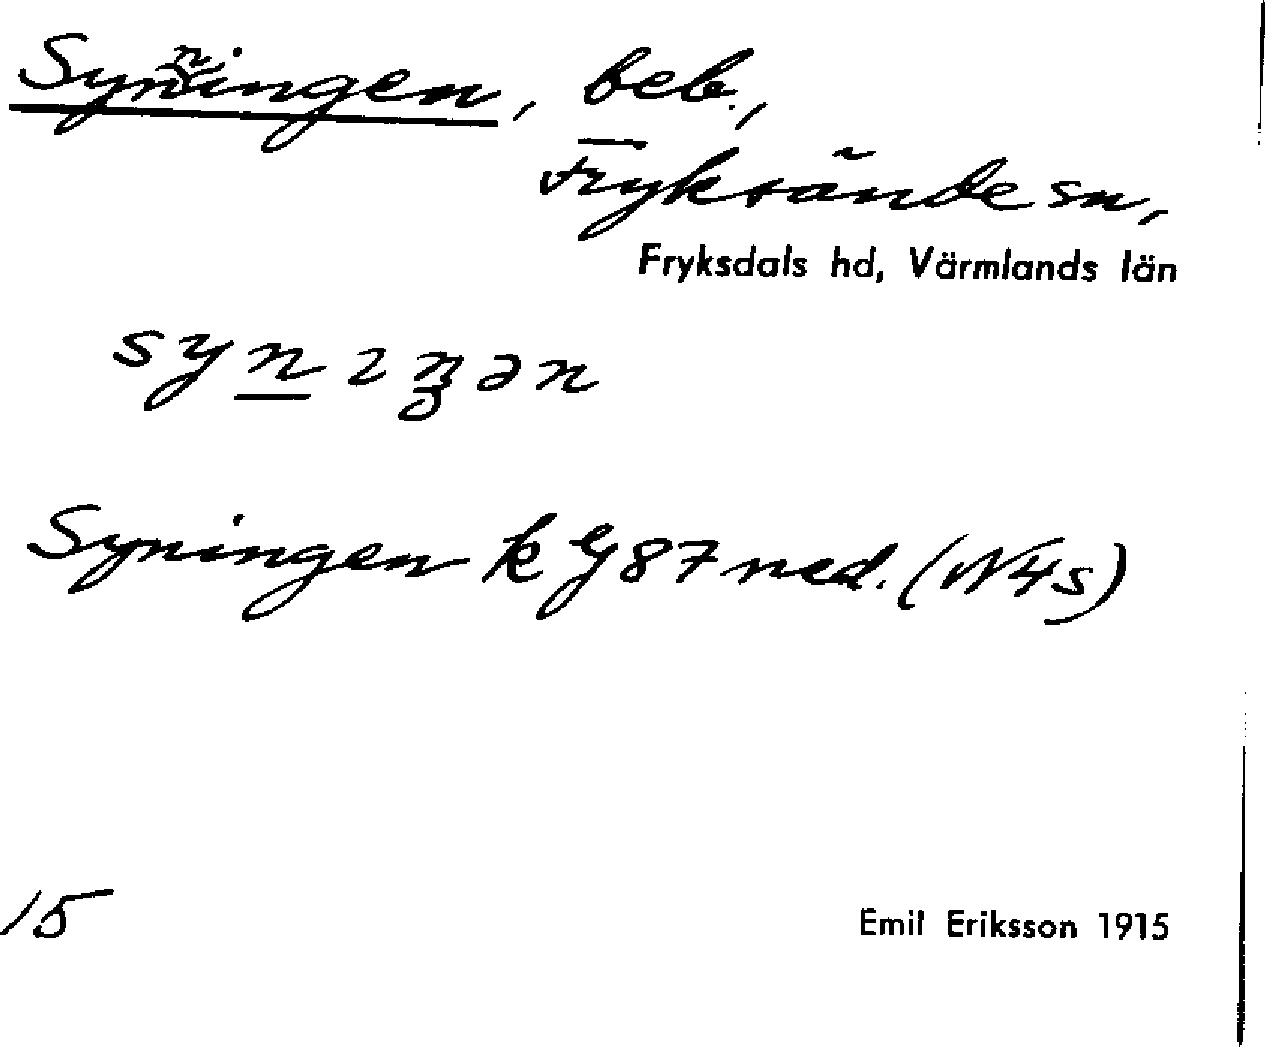 Synningen, beb.,
Fryksände sn,
Fryksdals hd, Värmlands län
syn̲ıŋən
Syningen k Gj87 ned. (W4s)
15
Emil Eriksson 1915